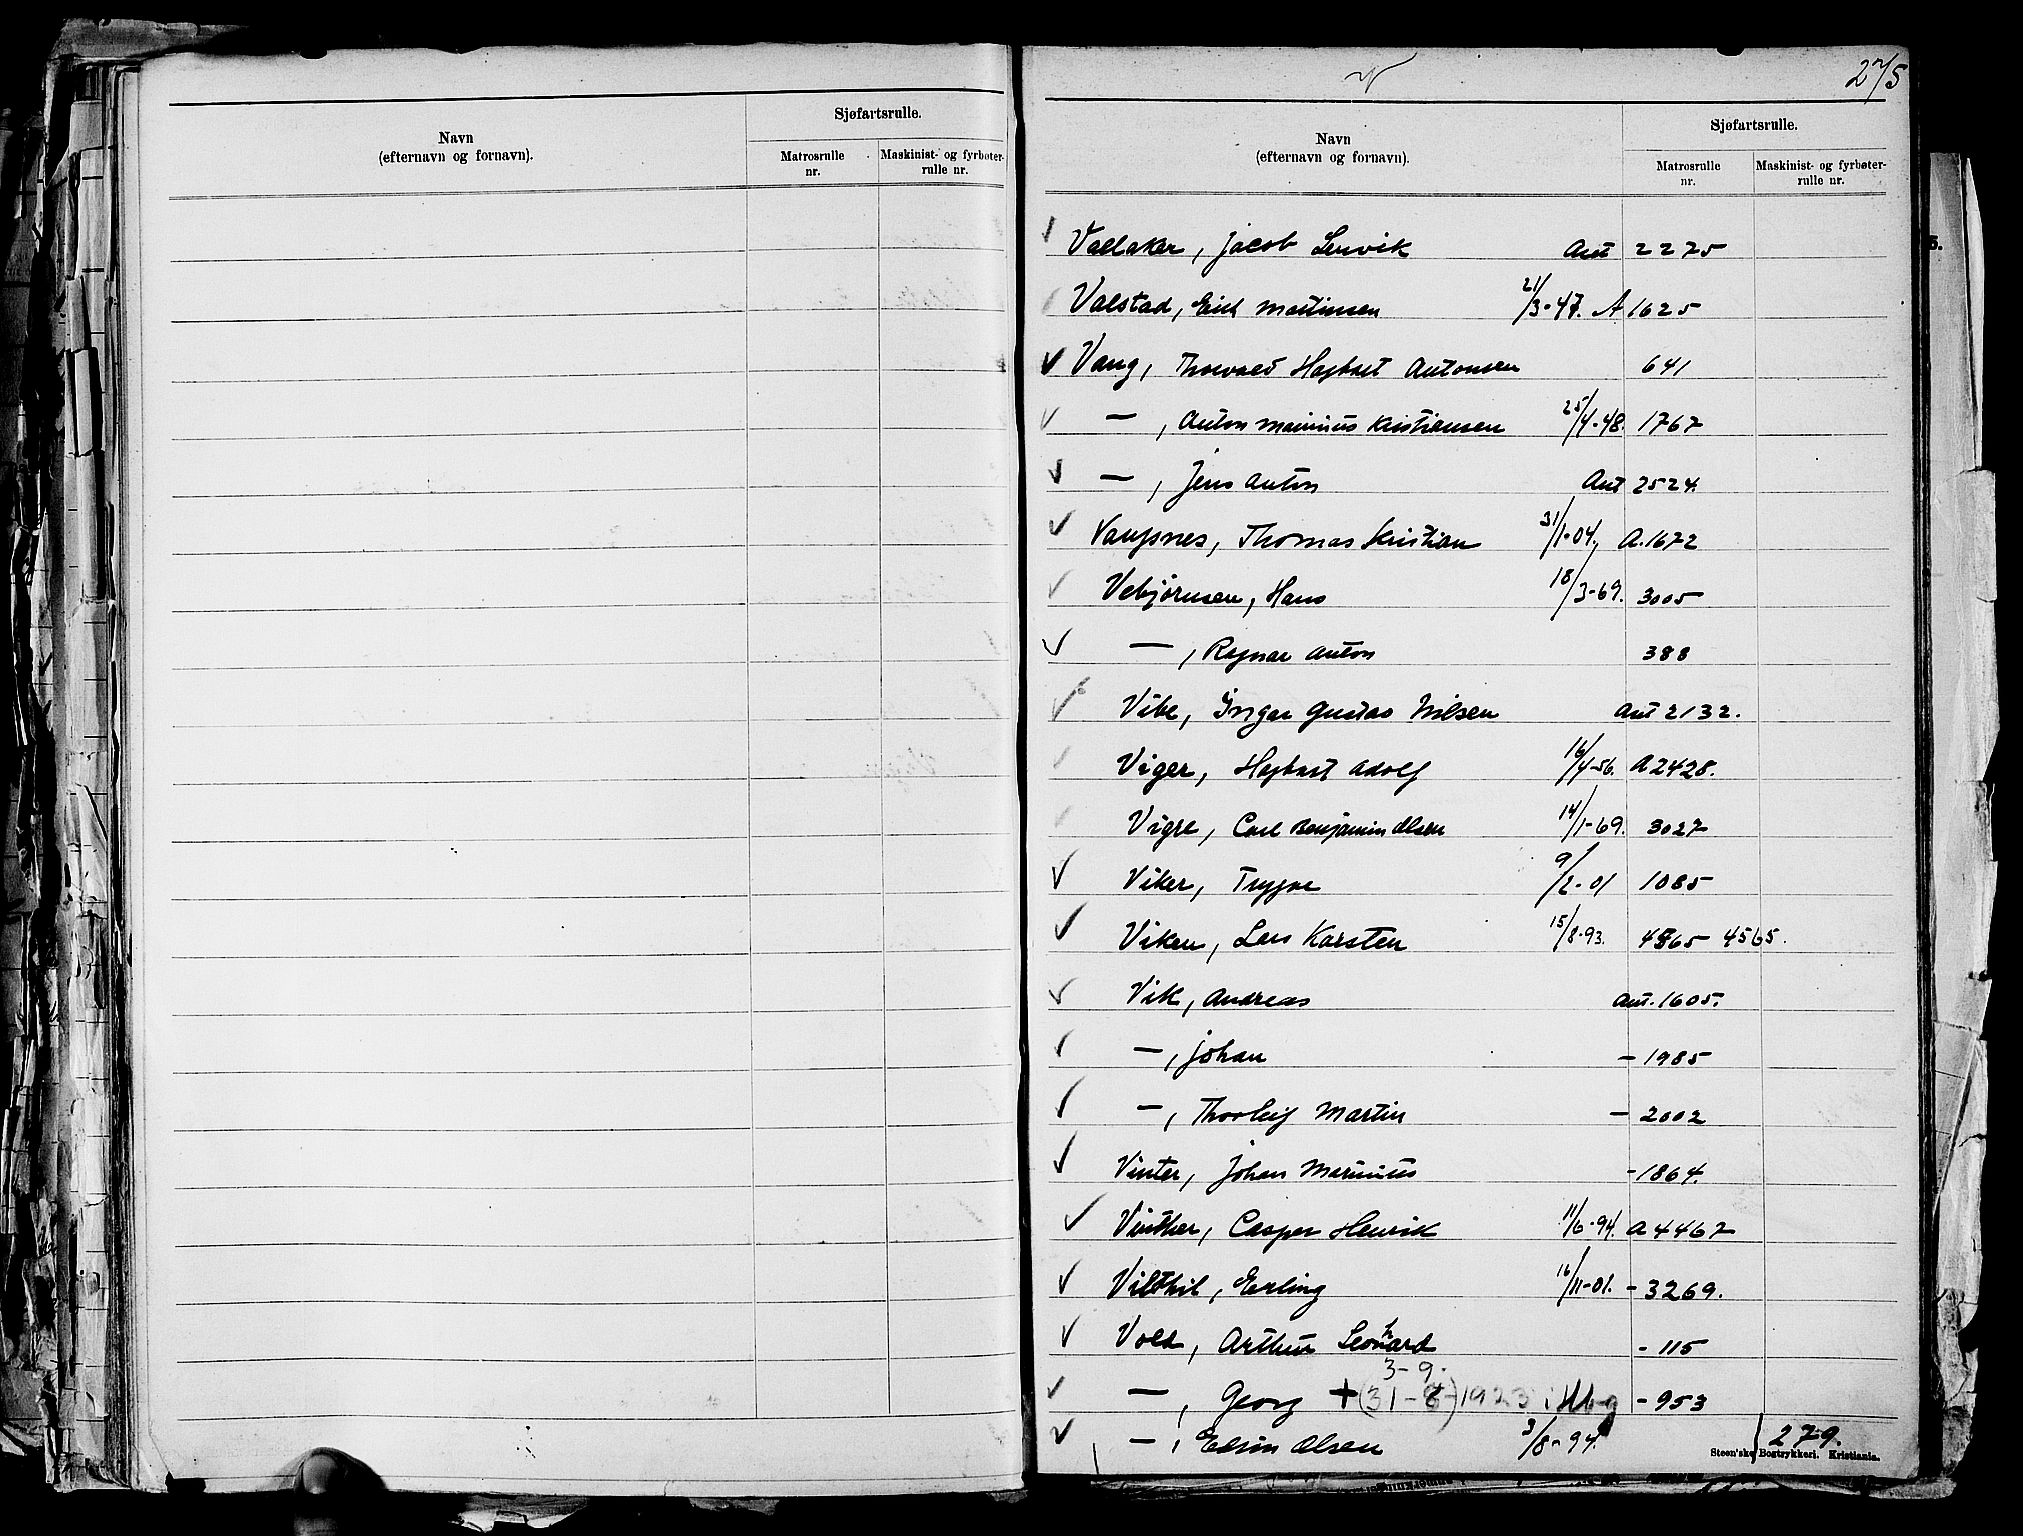 Navn
(efternavn og fornavn).
Sjøfartsrulle.
Matrosrulle nr.
Maskinist- og fyrbøter-rulle nr.
V 275
Navn
(efternavn og fornavn).
Sjøfartsrulle.
Matrosrulle nr.
Maskinist- og fyrbøter-rulle nr.
Vallaker, Jacob Lervik Ant 2275
Valstad, Erik Martinsen 21/3-47. A 1625
Vang, Thorvald Hagbart Antonsen 641
—, Anton Marinius Kristiansen 25/4-48. 1767
—, Jens Anton Ant 2524.
Vangsnes, Thomas Kristian 31/1-04, A.1672
Vebjørnsen, Hans 18/3-69. 3005
—, Ragnar Anton 388
Vibe, Ingar Gustav Nilsen Ant 2132.
Viger, Hagbart Adolf 16/4-56. A2428.
Vigre, Carl Benjamin Olsen 14/1-69. 3027
Viker, Trygve 9/2-01 1085
Viken, Lars Karsten 15/8-93. 4865 4565.
Vik, Andreas Ant. 1605.
—, Johan - 1985
—, Thorleif Martin - 2002
Vinter, Johan Marinius - 1864.
Vinther, Casper Henrik 11/6-94. A 4467
Vilthil, Erling 16/11-01. - 3269.
Vold, Arthur Leonhard - 115
3-9.
—, Georg + (31-8-) 1923 i Hbg - 953
—, Edvin Olsen 3/8-94. 279.
Steen'ske Bogtrykkeri. Kristiania.